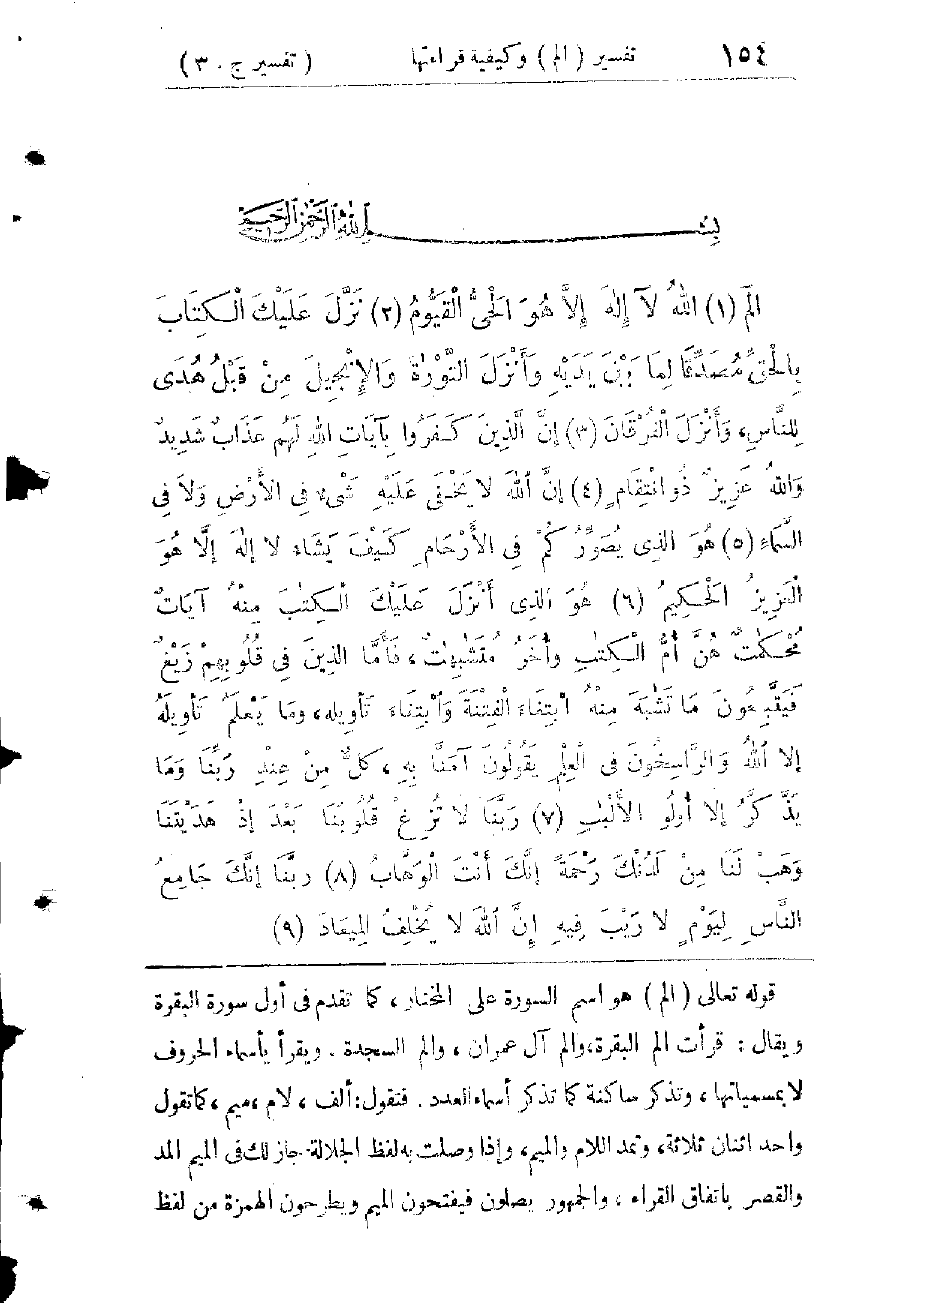 ١٥٤ تفسير ( الم ) وكيفية قراءتها ( تفسير ج ٠ ٣ )
بِسْمِ اللهِ الرَّحْمٰنِ الرَّحِيمِ
الٓمٓ (١) اللهُ لَآ إِلٰهَ إِلاَّ هُوَ الْحَىُّ الْقَيُّومُ (٢) نَزَّلَ عَلَيْكَ الْكِتَابَ
بِالْحَقِّ مُصَدِّقًا لِمَا بَيْنَ يَدَيْهِ وَأَنْزَلَ التَّوْرٰةَ وَالإِنْجِيلَ مِنْ قَبْلُ هُدَى
لِلنَّاسِ، وَأَنْزَلَ الْفُرْقَانَ (٣) إِنَّ الَّذِينَ كَفَرُوا بِآيَاتِ اللهِ لَهُم عَذَابٌ شَدِيدٌ
وَاللهُ عَزِيزٌ ذُو انْتِقَامٍ (٤) إِنَّ اللهَ لا يَخْفَى عَلَيْهِ شَىْء فِى الأَرْضِ وَلاَ فِى
السَّمَاءِ (٥) هُوَ الذِى يُصَوِّرُ كُمْ فِى الأَرْحَامِ كَيْفَ يَشَاء لا إِلٰهَ إلَّا هُوَ
الْعَزِيزُ الْحَكِيمُ (٦) هُوَ الذِى أَنْزَلَ عَلَيْكَ الْكِتٰبَ مِنْهُ آيَاتٌ
مُحْكَمٰتٌ هُنَّ أُمُّ الْكِتٰبِ وأُخَرُ مُتَشٰبِهٰتٌ، فَأَمَّا الذِينَ فِى قُلُوبِهِمْ زَيْغٌ
فَيَتَّبِعُونَ مَا تَشٰبَهَ مِنْهُ ابْتِغَاءَ الْفِتْنَةَ وَابْتِغَاءَ تَأويله، وما يَعْلَمُ تَأويلَهُ
إلا اللهُ وَالرَّاسِخُونَ فى الْعِلْمِ يَقُولُونَ آمَنَّا بِهِ، كلٌّ مِنْ عِنْدِ رَبِّنَا وَمَا
يَذَّكَّرُ إلا أُولُو الأَلْبٰبِ (٧) رَبَّنَا لاَ تُزِغْ قُلُوبَنَا بَعْدَ إِذْ هَدَيْتَنَا
وَهَبْ لَنَا مِنْ لَدُنْكَ رَحْمَةً إِنَّكَ أَنْتَ الْوَهَّابُ (٨) رَبَّنَا إِنَّكَ جَامِعُ
النَّاسِ لِيَوْمٍ لا رَيْبَ فِيهِ إِنَّ اللهَ لا يُخْلِفُ المِيعَادَ (٩)
قوله تعالى ( الم ) هو اسم السورة على المختار، كما تقدم فى أول سورة البقرة
ويقال : قرأت الم البقرة، والم آل عمران ، والم السجدة . ويقرأ بأسماء الحروف
لا بمسمياتها ، وتذكر ساكنة كما تذكر أسماء العدد . فتقول: ألف ، لام ، ميم ، كما تقول
واحد اثنان ثلاثة، وتمد اللام والميم، وإذا وصلت به لفظ الجلالة جاز لك فى الميم المد
والقصر باتفاق القراء ، والجمهور يصلون فيفتحون الميم ويطرحون الهمزة من لفظ